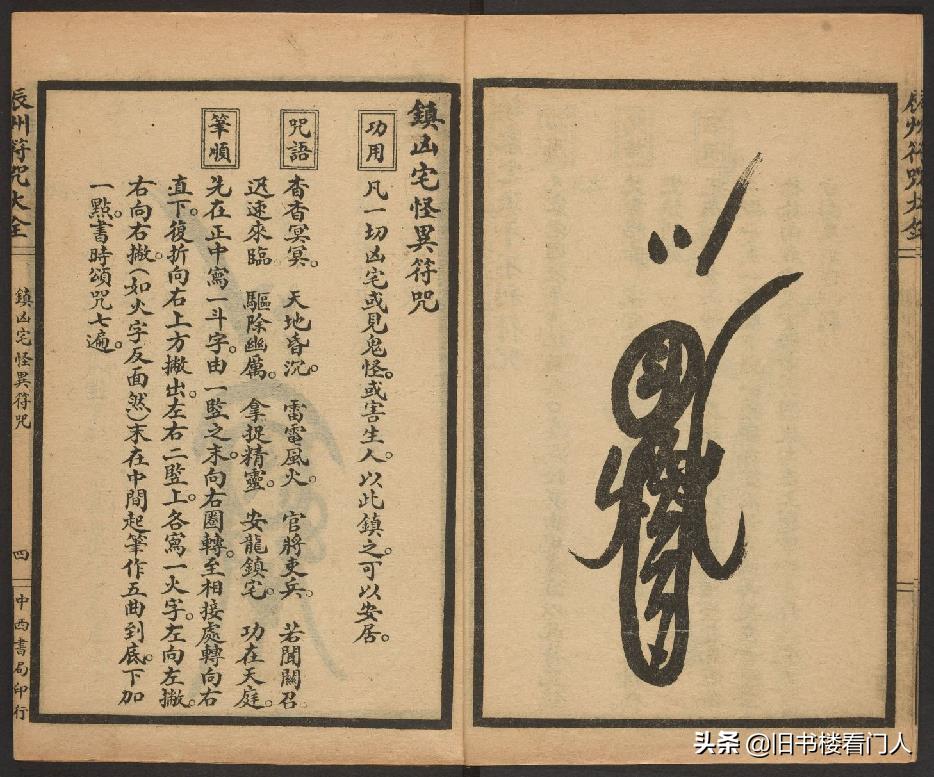 辰州符咒大全
鎮凶宅怪異符咒
功用
凡一切凶宅或見鬼怪。或害生人。以此鎮之。可以安居。
咒語
杳杳冥冥。天地昏沉。雷電風火。官將吏兵。若聞關召。
迅速來臨　驅除幽厲。拿捉精靈。安龍鎮宅。功在天庭。
筆順
先在正中寫一斗字。由一竪之末。向右圈轉。至相接處轉向右
直下。復折向右上方撇出。左右二竪上。各寫一火字。左向左撇。
右向右撇。(如火字反面然)末在中間起筆作五曲到底。下加
一點。書時頌咒七遍。
辰州符咒大全
鎮凶宅怪異符咒
四
中西書局印行
头条 @旧书楼看门人